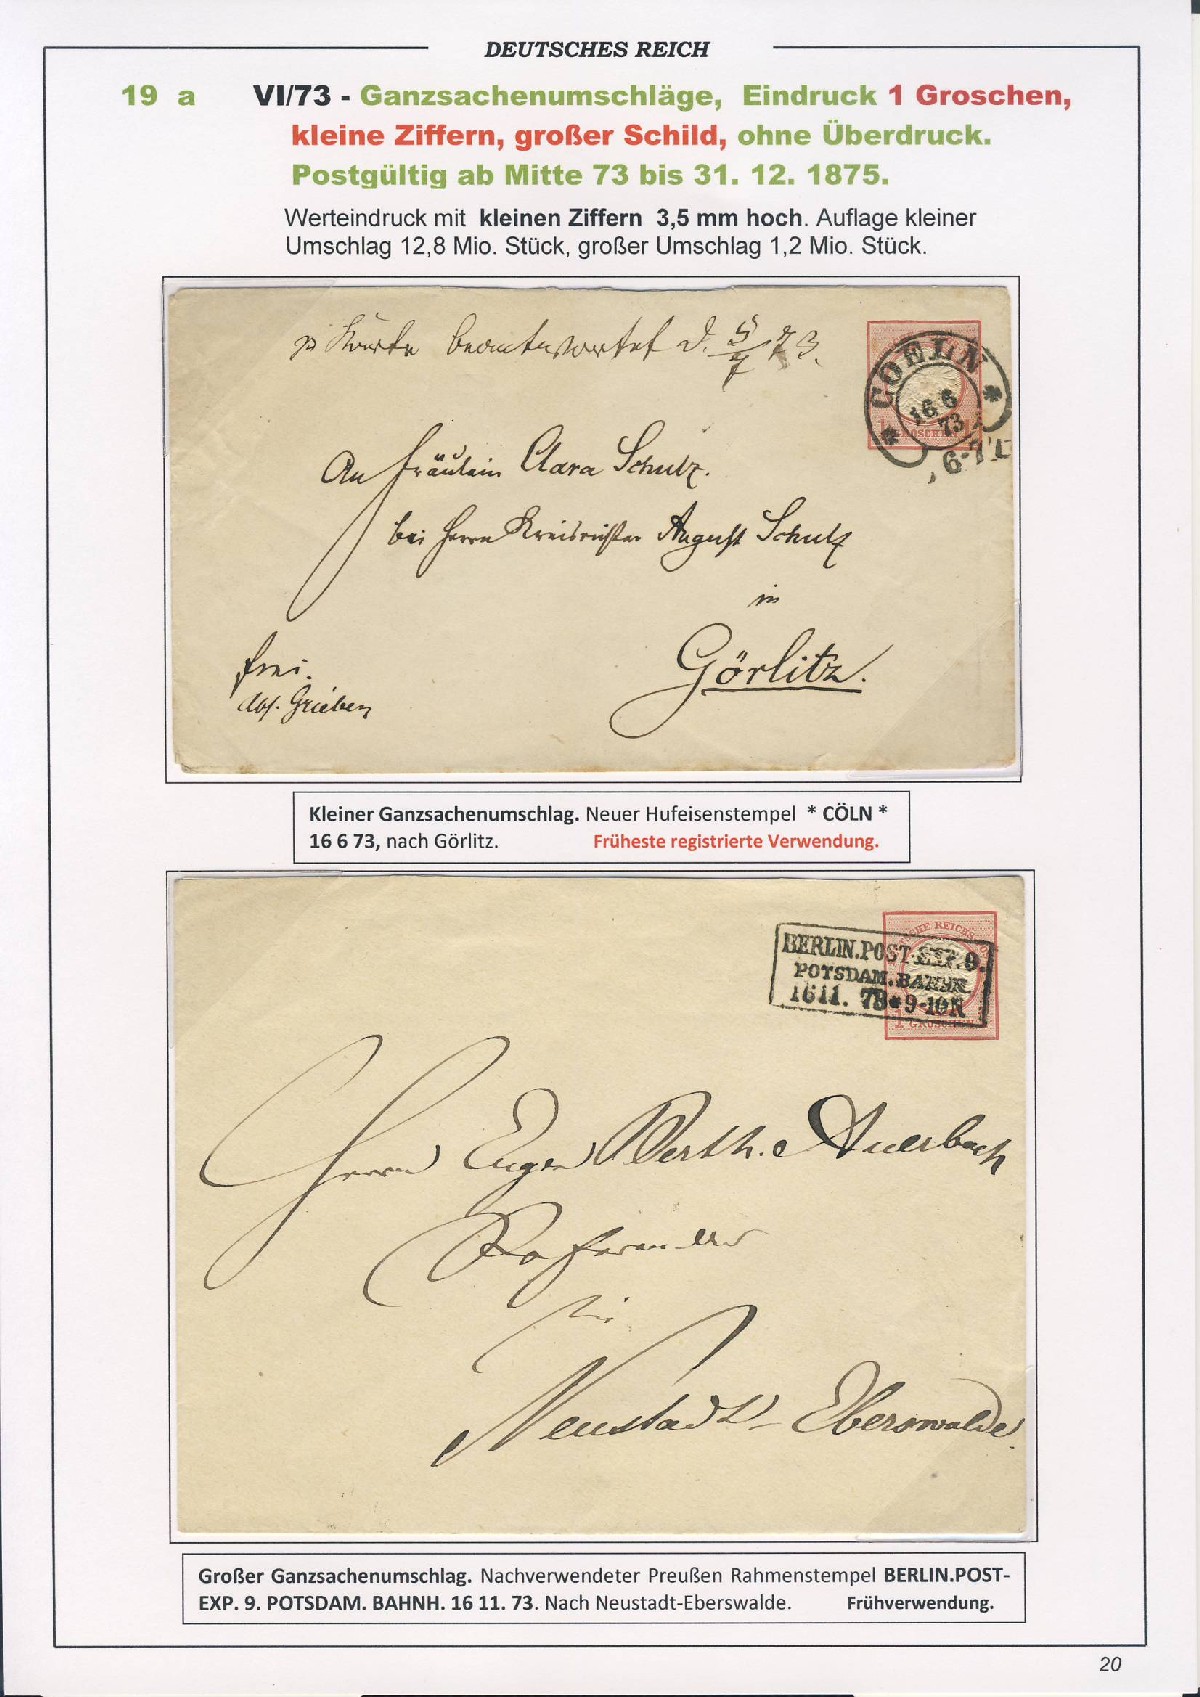 DEUTSCHES REICH
19 a VI/73 - Ganzsachenumschläge, Eindruck 1 Groschen,
kleine Ziffern, großer Schild, ohne Überdruck.
Postgültig ab Mitte 73 bis 31. 12. 1875.
Werteindruck mit kleinen Ziffern 3,5 mm hoch. Auflage kleiner
Umschlag 12,8 Mio. Stück, großer Umschlag 1,2 Mio. Stück.
p Karte beantwortet d. 5/7 73.
COELN
16 6
73
6-7
GROSCHEN
An Fräulein Clara Schulz.
bei Herrn Kreisrichter August Schulz
in
Görlitz.
frei.
Abs. Grieben
Kleiner Ganzsachenumschlag. Neuer Hufeisenstempel * CÖLN *
16 6 73, nach Görlitz. Früheste registrierte Verwendung.
BERLIN.POST-EXP.9.
POTSDAM.BAHNH.
16 11. 73 * 9-10N
1 GROSCHEN
Herrn Eugen Berth. Auerbach
in
Neustadt-Eberswalde.
Großer Ganzsachenumschlag. Nachverwendeter Preußen Rahmenstempel BERLIN.POST-
EXP. 9. POTSDAM. BAHNH. 16 11. 73. Nach Neustadt-Eberswalde. Frühverwendung.
20